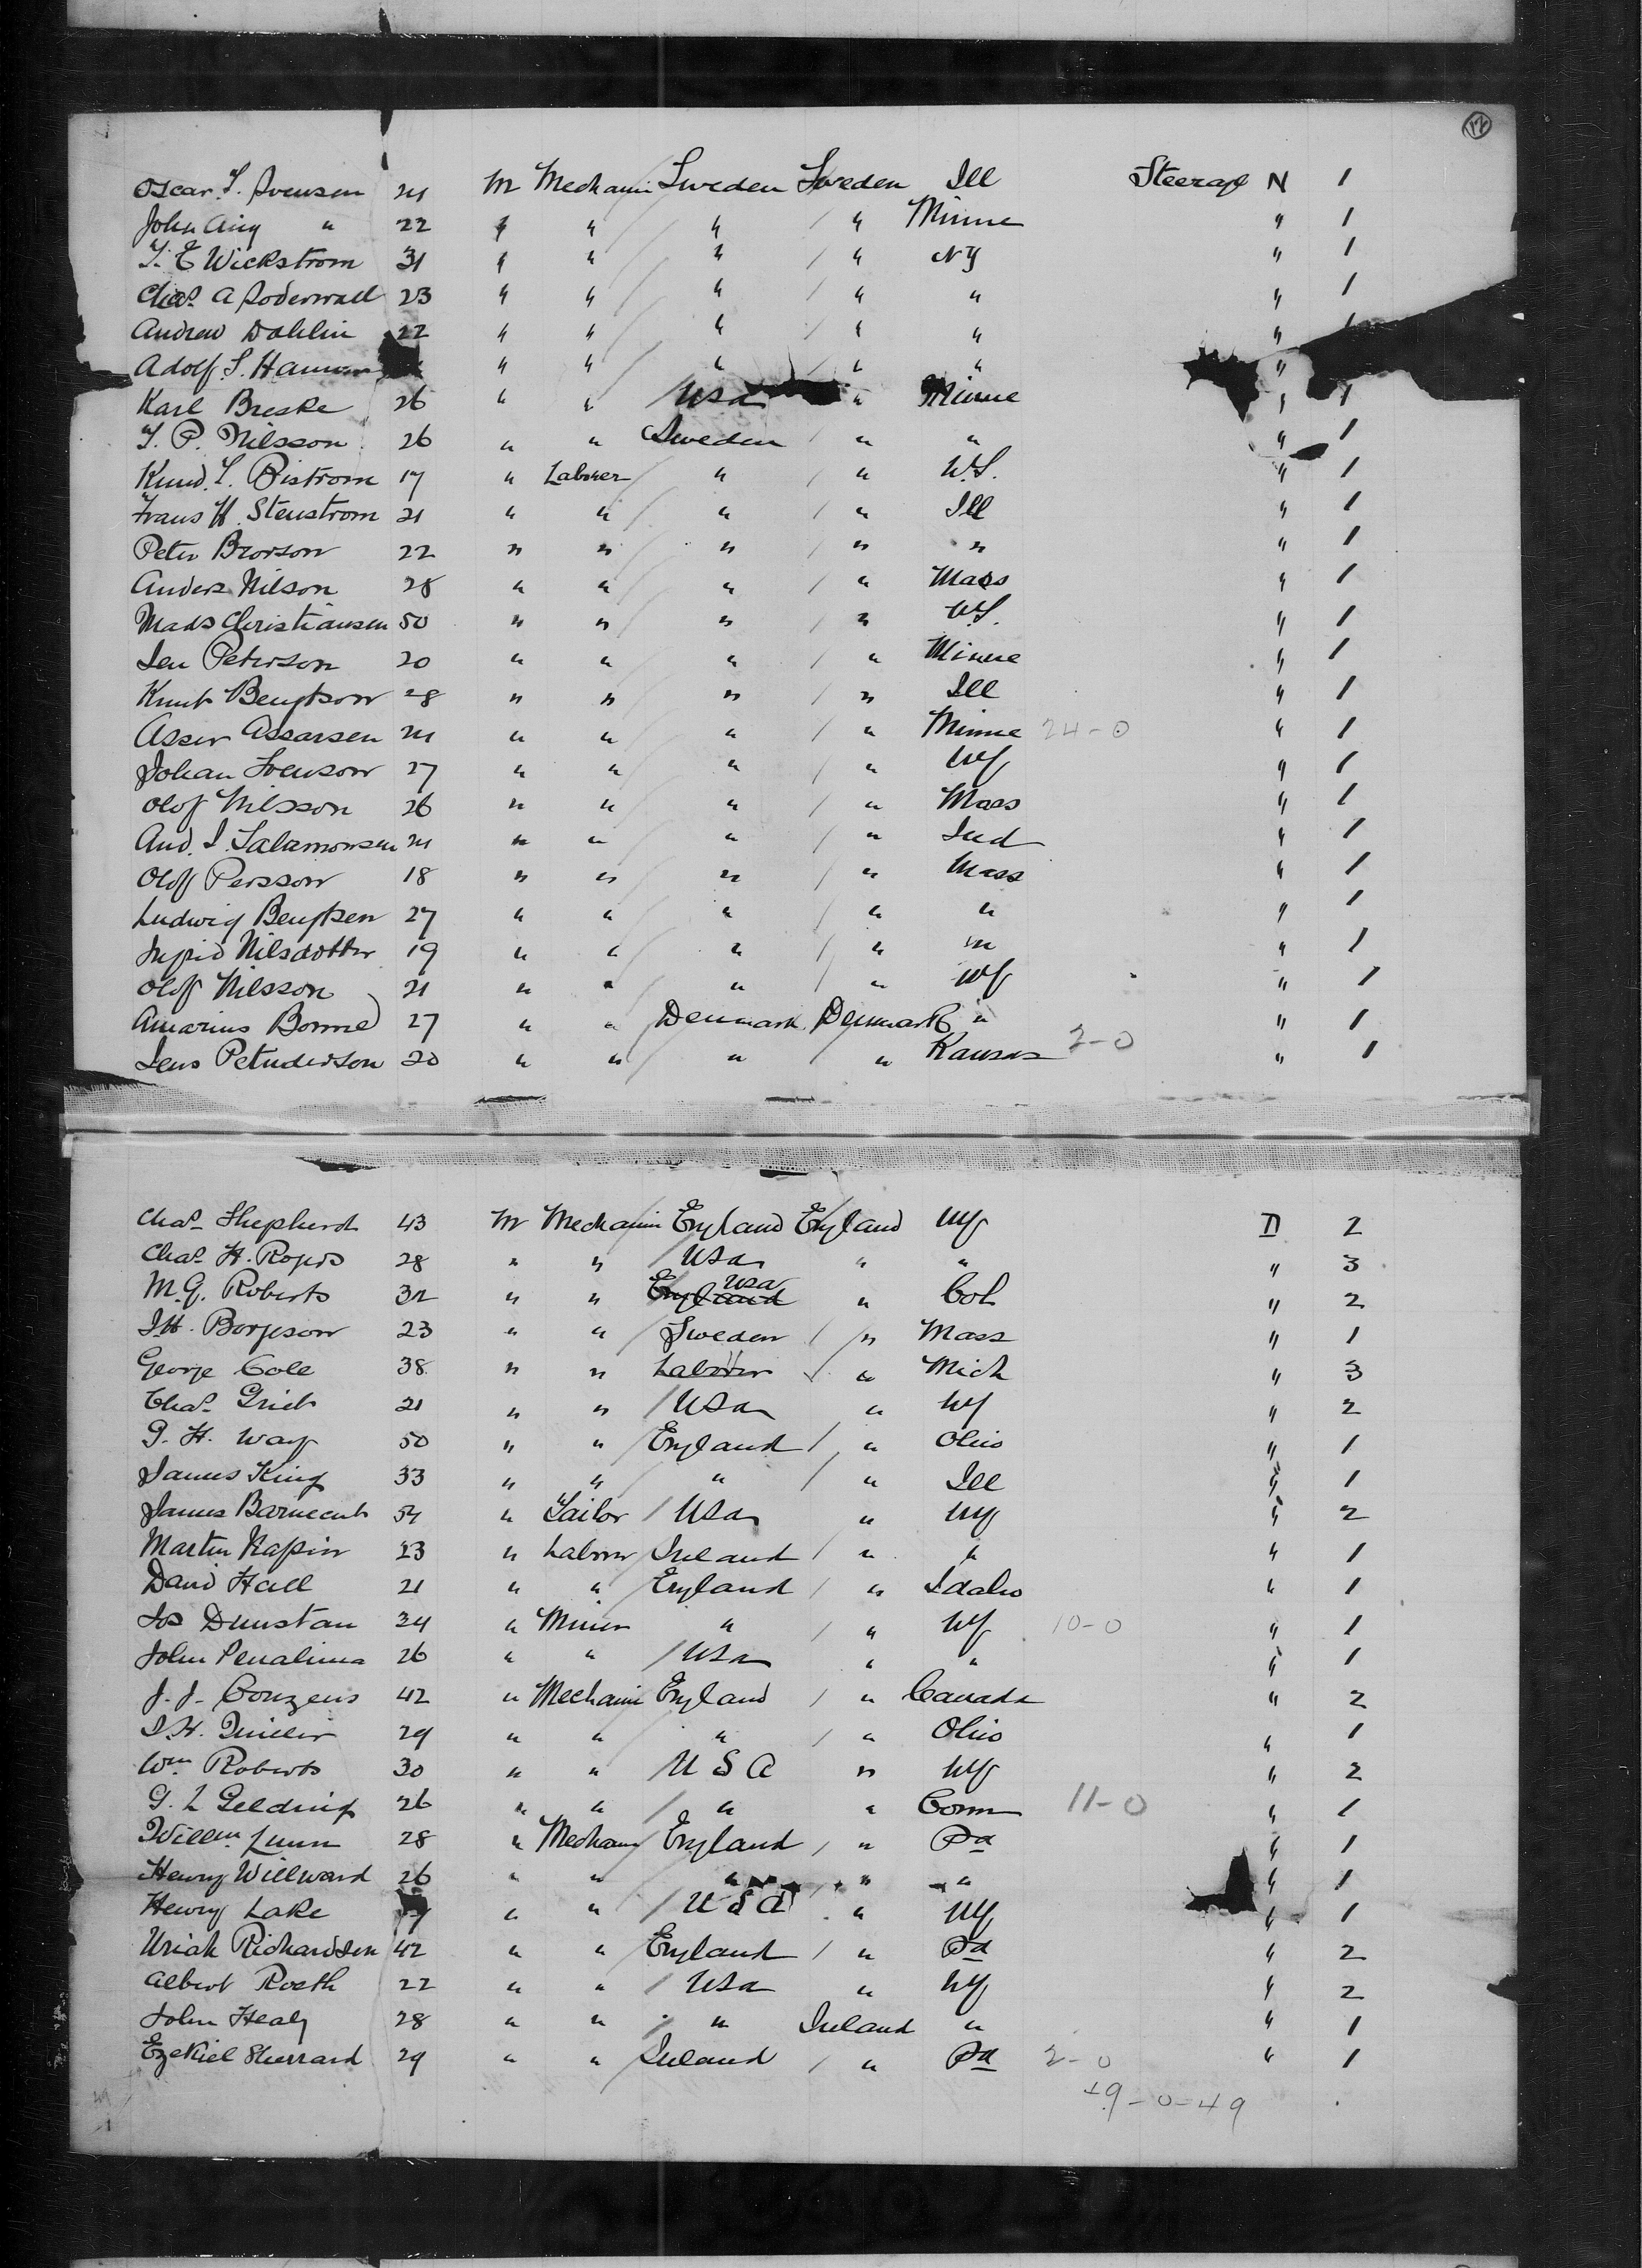 12
Oscar S. Svensen 24 M Mechanic Sweden Sweden Ill Steerage N 1
John Aug " 22 " " " " Minne " 1
T. E Wickstrom 31 " " " " NY " 1
Chas. A Soderwall 23 " " " " " " 1
Andrew Dahlin 22 " " " " " " 1
Adolf. S. " " " " " "
Karl Breske 26 " " USA " Minne " 1
T. P. Nilsson 26 " " Sweden " " " 1
Knud. L. Bistrom 17 " Laborer " " W.S. " 1
Frans H. Stenstrom 21 " " " " Ill " 1
Peter Brorson 22 " " " " " " 1
Anders Nilson 28 " " " " Mass " 1
Mads Christiansen 50 " " " " W.S. " 1
Jen Peterson 20 " " " " Minne " 1
Knut Bengtson 28 " " " " Ill " 1
Asser Assarsen 24 " " " " Minne 24-0 " 1
Johan Svenson 27 " " " " NY " 1
Olof Nilsson 26 " " " " Mass " 1
And. S. Salamonsen 24 " " " " Ind " 1
Olof Persson 18 " " " " Mass " 1
Ludwig Bengtsen 27 " " " " " " 1
Ingrid Nilsdotter 19 " " " " " " 1
Olof Nilsson 21 " " " " NY " 1
Amarius Borme 27 " " Denmark Denmark " " 1
Jens 20 " " " " Kansas 2-0 " 1
Chas. Shepherd 43 M Mechanic England England NY D 2
Chas. H. Rogers 28 " " USA " " " 3
M. G. Roberts 32 " " England USA " Col " 2
J. H. Borgeson 23 " " Sweden " Mass " 1
George Cole 38 " " Laborer " " Mich " 3
Chas. Grieb 21 " " USA " NY " 2
G. H. Way 50 " " England " Ohio " 1
James King 33 " " " " Ill " 1
James 54 " Tailor USA " NY " 2
Martin 23 " Laborer Ireland " " " 1
David Hall 21 " " England " Idaho " 1
Jos Dunstan 34 " Miner " " NY 10-0 " 1
John Penaluna 26 " " USA " " " 1
J. J. Couzens 42 " Mechanic England " Canada " 2
J. H. 29 " " " " Ohio " 1
Wm. Roberts 30 " " U S A " NY " 2
G. L Gelding 26 " " " " Conn 11-0 " 1
Willm. Lunn 28 " Mechanic England " Pa " 1
Henry Willward 26 " " " " " " 1
Henry Lake " " U S A " NY " 1
Uriah Richardson 42 " " England " Pa " 2
Albert Roeth 22 " " USA " NY " 2
John Healy 28 " " " Ireland " " 1
Ezekiel Sherrard 29 " " Ireland " Pa 2-0 " 1
49-0-49